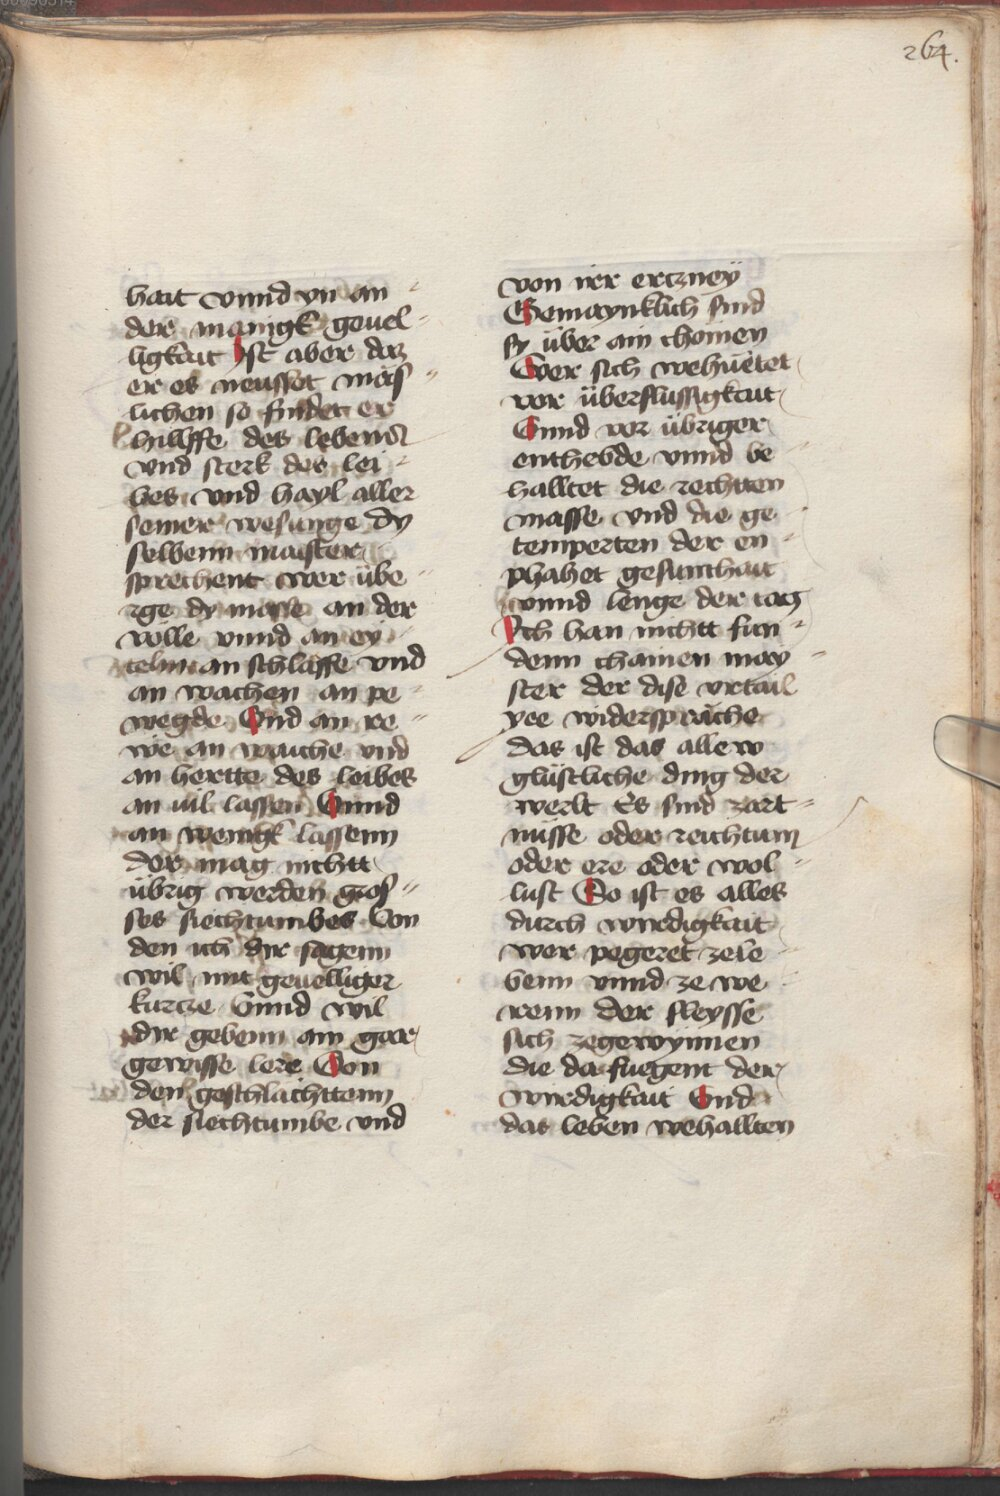 264.
hait vnnd vn an
der manigk geuel-
ligkait Ist aber daz
er es neusset mäs
lichen so findet er
hillffe des lebens
vnd sterk des lei
bes vnd hayl aller
seiner wesunge dy
selbenn maister
sprechent wer übe
rge dy masse an der
völle vnnd an ey
teln an schlaffe vnd
an wachen an pe
wegde Vnd an re
we an wäiche vnd
an hertte des leibes
an uil lassen Vnnd
an wenigk lassenn
der mag nichtt
übrig werden gros
ses siechtumbes Von
den ich dir sagenn
wil mit geuelliger
kurcze Vnnd wil
dir gebenn ain gar
gewisse lere Von
den geschlächttenn
der siechtumbe vnd
von irr erczney
Gemaynklich sind
sy über ain chomen
Wer sich wehüetet
vor überflüssigkait
Vnnd vor übriger
enthebde vnnd be
halltet die rechtten
masse vnd die ge
temperten der en
phahet gesunthait
vnnd lenge der tag
Ich han nichtt fun
denn chainen may
ster der dise vrtail
yee widersprache
das ist das alle w
glüstliche ding der
werlt Es sind zart
nüsse oder reichtum
oder ere oder wol
lust So ist es alles
durch wirdigkait
wer pegeret ze le
benn vnnd ze we
renn der fleysse
sich zegewynnen
die da fuegent der
wirdigkait Vnd
das leben wehallten